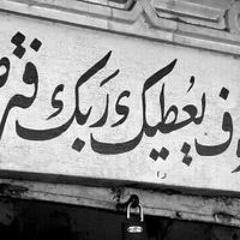 وف يُعطيك رَبك فترض